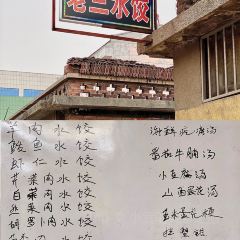 老三水饺
羊肉水饺
鲅鱼水饺
虾仁水饺
芹菜肉水饺
白菜肉水饺
韭菜肉水饺
萝卜肉水饺
番茄牛腩汤
小豆腐汤
山西疙瘩汤
玉米蛋花粳